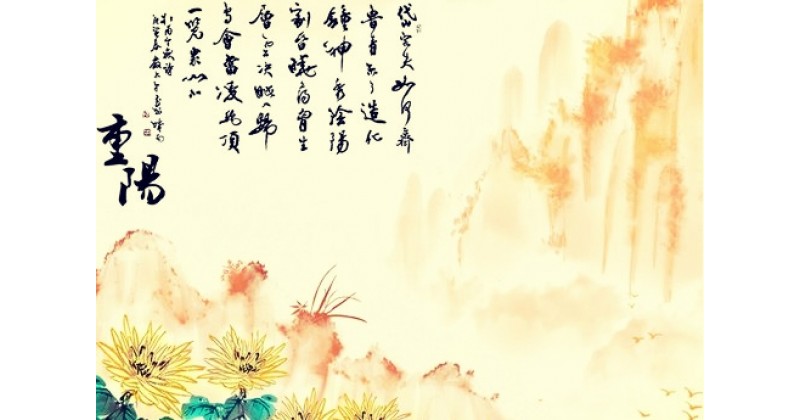 岱宗夫如何齊
魯青未了造化
鍾神秀陰陽
割昏曉蕩胸生
層雲決眥入歸
鳥會當凌絕頂
一覽衆山小
重陽